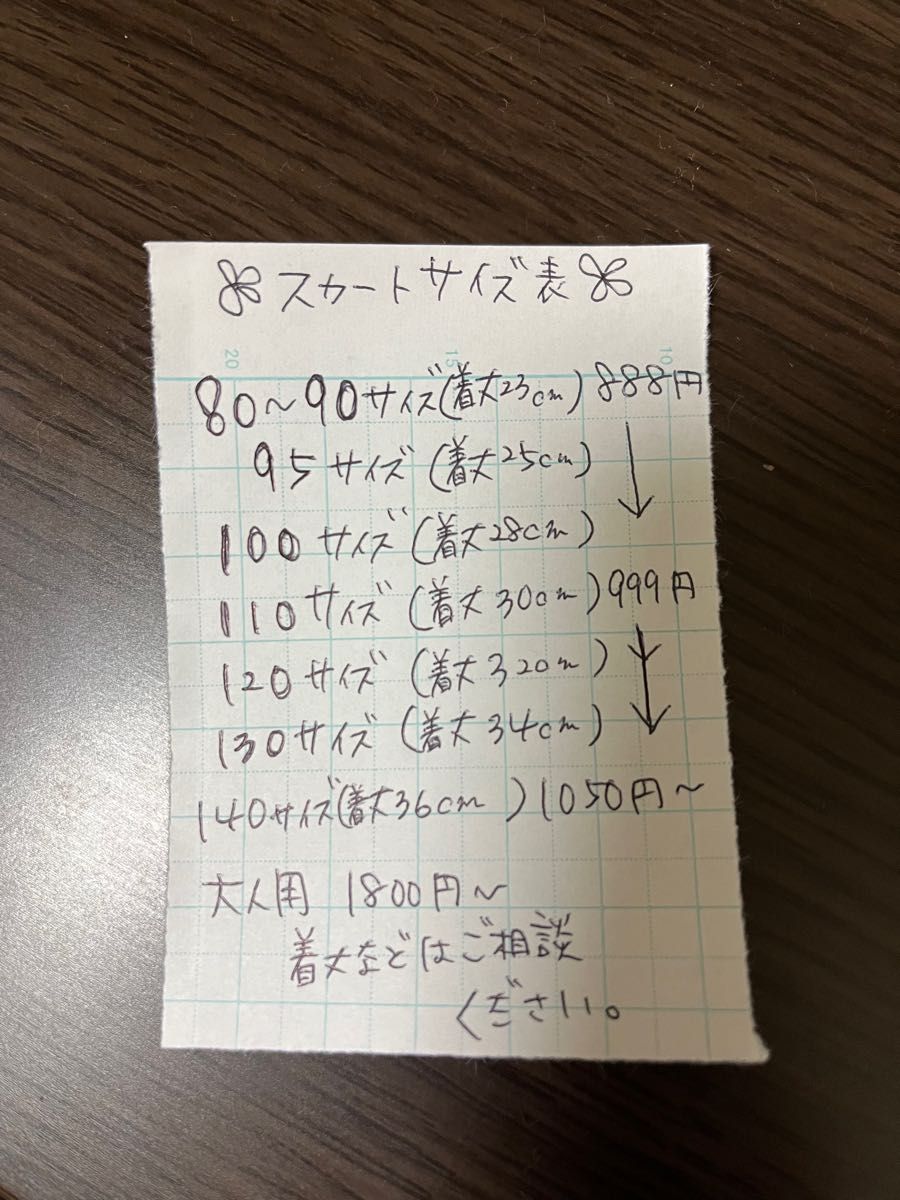 スカートサイズ表
20 15 10
80~90サイズ(着丈23cm) 888円
95サイズ(着丈25cm)
100サイズ(着丈28cm)
110サイズ(着丈30cm) 999円
120サイズ(着丈32cm)
130サイズ(着丈34cm)
140サイズ(着丈36cm) 1050円~
大人用 1800円~
着丈などはご相談
ください。